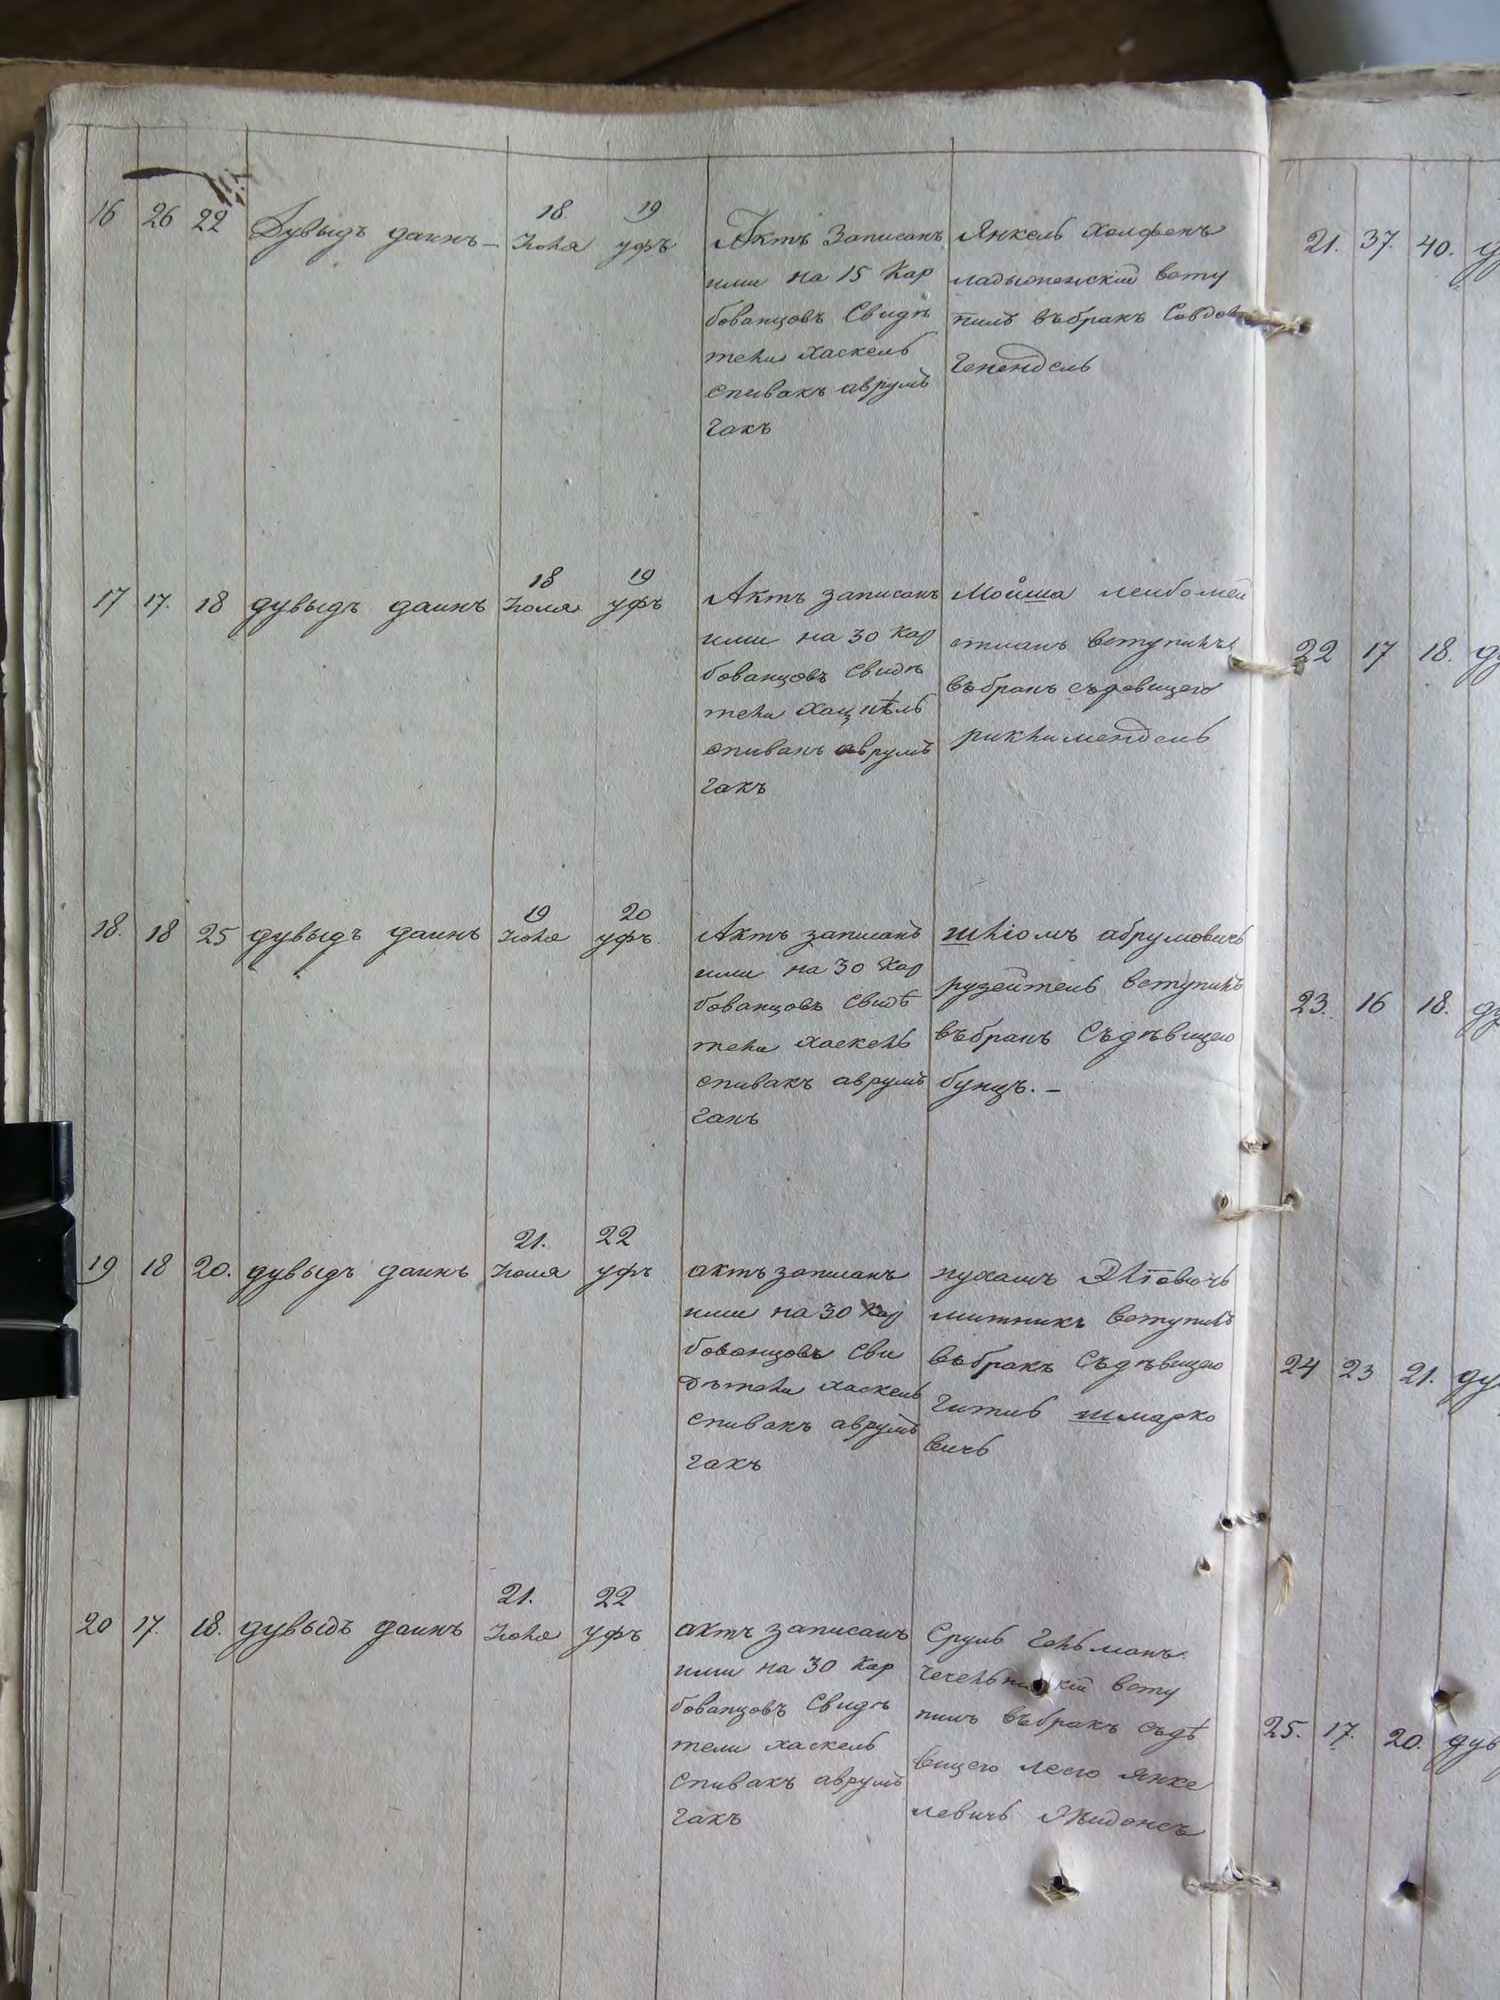 16 26 22 Дувыдъ даинъ — 18 Іюля 19 уфъ
Актъ Записанъ
ими на 15 Кар
бованцовъ Свидѣ
тели хаскель
спивакъ аврумъ
гакъ
Янкель Халфенъ
ладыженскій всту
пилъ въбракъ Совдов
Генендель
17 17. 18 дувыдъ даинъ 18 Іюля 19 уфъ
Актъ записанъ
ими на 30 Кар
бованцовъ Свидѣ
тели
спивакъ аврумъ
гакъ
Мойша
вступилъ
въбракъ
18. 18 25 дувыдъ даинъ 19 Іюля 20 уфъ.
Актъ записанъ
ими на 30 Кар
бованцовъ Свидѣ
тели хаскель
спивакъ аврумъ
гакъ
шліомъ абрумовичъ
рузейтель вступилъ
въбракъ Съдѣвицею
бунцъ. —
19 18 20. дувыдъ даинъ 21. Іюля 22 уфъ
актъ записанъ
ими на 30 Кар
бованцовъ Сви
дѣтели хаскель
спивакъ аврумъ
гакъ
вступилъ
въбракъ Съдѣвицею
Гитль шмарко
вичъ
20 17. 18. дувыдъ даинъ 21. Іюля 22 уфъ
актъ записанъ
ими на 30 Кар
бованцовъ Свидѣ
тели хаскель
спивакъ аврумъ
гакъ
Сруль Гельманъ
всту
пилъ въбракъ съдѣ
вицею леею янке
левичъ
21. 37. 40.
22 17 18.
23. 16 18.
24 23 21.
25. 17. 20.